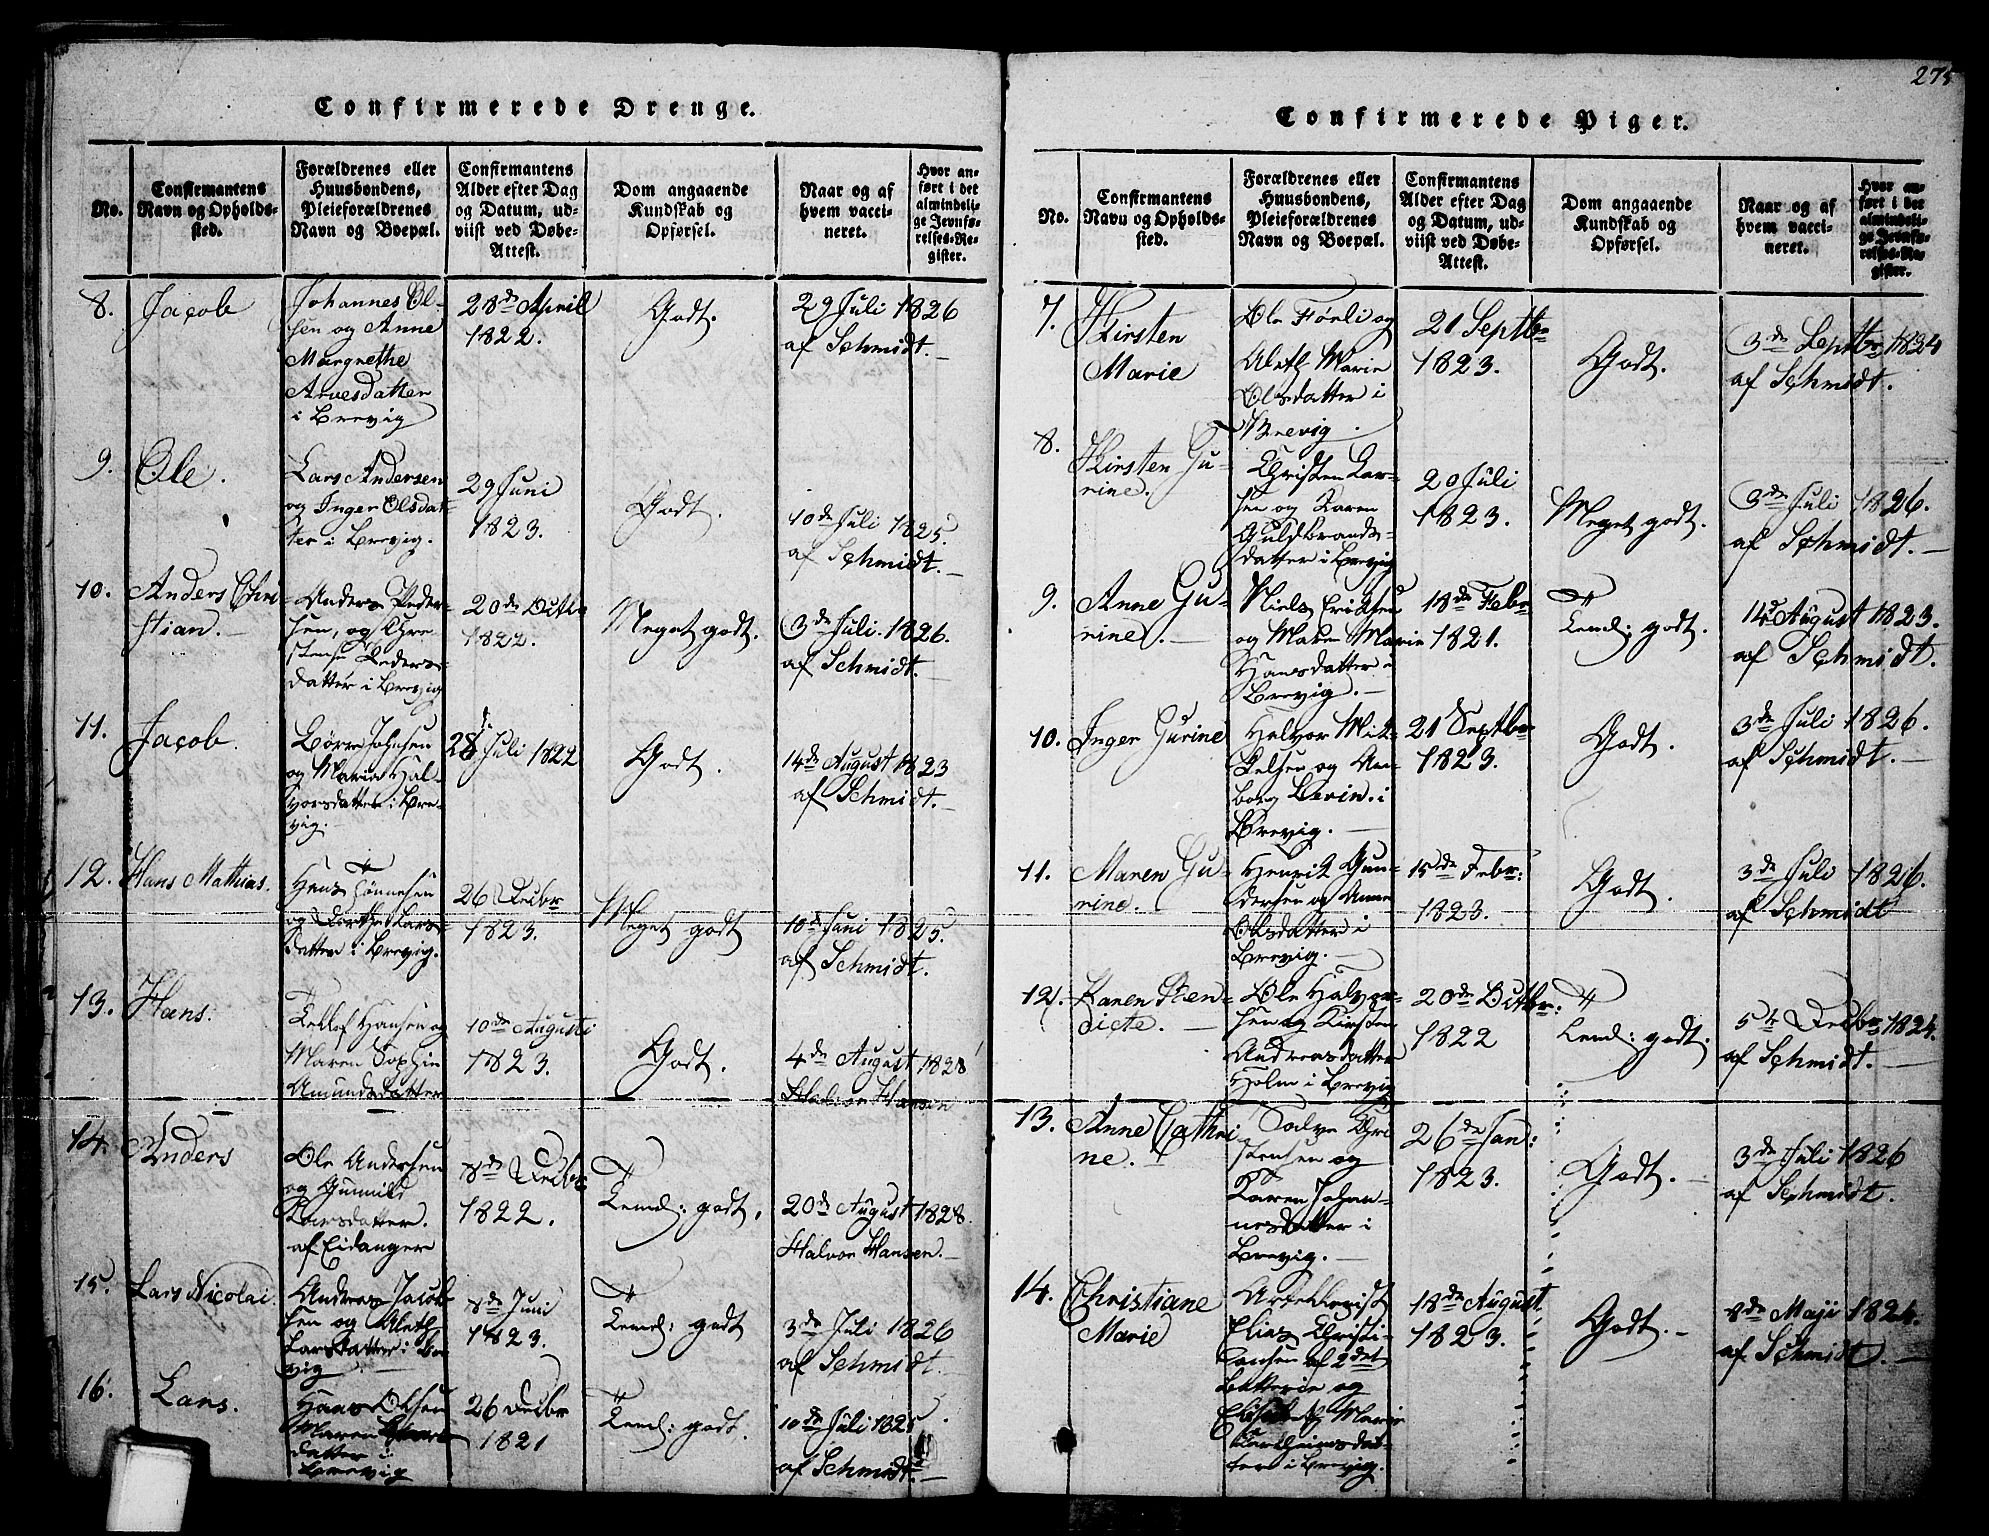 275
Confirmerede Drenge.
No.
Confirmantens
Navn og Opholds-
sted.
Forældrenes eller
Huusbondens,
Pleieforældrenes
Navn og Boepæl.
Confirmantens
Alder efter Dag
og Datum, ud-
viist ved Døbe-
Attest.
Dom angaaende
Kundskab og
Opførsel.
Naar og af
hvem vacci-
neret.
Hvor an-
ført i det
almindeli-
ge Jevnfø-
relses-Re-
gister.
8.
Jacob
Johannes Ol-
sen og Anne
Margrethe
Arvesdatter
i Brevig
28de April
1822.
Godt.
29 Juli 1826
af Schmidt.
9.
Ole.
Lars Andersen
og Inger Olsdat-
ter i Brevig.
29 Juni
1823.
Godt.
10de Juli 1825.
af Schmidt.
10.
Anders Chri-
stian.
Anders Peder-
sen, og Chri-
stense Peders-
datter i Brevig
20de Octbr
1822.
Meget godt.
3de Juli 1826.
af Schmidt.
11.
Jacob.
Børre Johnsen
og Maria Hal-
vorsdatter i Bre-
vig.
28 Juli 1822
Godt.
14de August 1823
af Schmidt.
12.
Hans Mathias.
Hans Tönnesen
og Dorthe Lars-
datter i Brevig.
26 Decbr
1823.
Meget godt
10de Juni 1825.
af Schmidt.
13.
Hans.
Detlef Hansen og
Maren Sophie
Amundsdatter
10de Augusti
1823.
Godt.
4de August 1828
Halvor Hansen
14.
Anders
Ole Andersen
og Gunnild
Larsdatter.
af Eidanger
8de Decbr
1822.
Temel: godt.
20de August 1828.
Halvor Hansen.
15.
Lars Nicolai.
Andreas Jacob-
sen og Aleth
Larsdatter i Bre-
vig
8de Juni
1823.
Temel: godt
3de Juli 1826
af Schmidt.
16.
Lars.
Hans Olsen
Maren
datter i
Brevig
26 Decbr
1821
Temel: godt.
10de Juli 1825.
af Schmidt.
Confirmerede Piger.
No.
Confirmantens
Navn og Opholds-
sted.
Forældrenes eller
Huusbondens,
Pleieforældrenes
Navn og Boepæl.
Confirmantens
Alder efter Dag
og Datum, ud-
viist ved Døbe-
Attest.
Dom angaaende
Kundskab og
Opførsel.
Naar og af
hvem vacci-
neret.
Hvor an-
ført i det
almindeli-
ge Jevnfø-
relses-Re-
gister.
7.
Kirsten
Marie
Ole Förli og
Aleth Marie
Olsdatter i
Brevig.
21 Septbr
1823.
Godt.
3de Septbr 1824
af Schmidt.
8.
Kirsten Gu-
rine.
Christen Lar-
sen og Karen
Guldbrands-
datter i Brevig
20 Juli
1823.
Meget godt.
3de Juli 1826.
af Schmidt.
9.
Anne Gu-
rine.
Niels Eriksen
og Maren Marie
Hansdatter i
Brevig.
18de Febr
1821.
Temel: godt.
14de August 1823.
af Schmidt.
10.
Inger Gurine
Halvor Mik-
kelsen og An-
borg Levin. i
Brevig.
21 Septbr
1823.
Godt.
3de Juli 1826.
af Schmidt.
11.
Maren Gu-
rine.
Henrik Gun-
dersen og Anne
Olsdatter i
Brevig.
15de Febr:
1823.
Godt.
3de Juli 1826.
af Schmidt
12.
Karen Ben-
dicte.
Ole Halvor-
sen og Kirsten
Andreasdatter
Holm i Brevig
20de Octbr:
1822
Temel: godt.
5te Decbr 1824.
af Schmidt.
13.
Anne Cathri
ne.
Salve Chri
stensen og
Karen Johan-
nesdatter i
Brevig.
26de Jan:
1823.
Godt.
3de Juli 1826
af Schmidt.
14.
Christiane
Marie
Artellerist
Elias Christi-
ansen af 2det
Batterie og
Elisabeth Marie
i Brevig.
18de August
1823.
Godt.
8de Maji 1824.
af Schmidt.